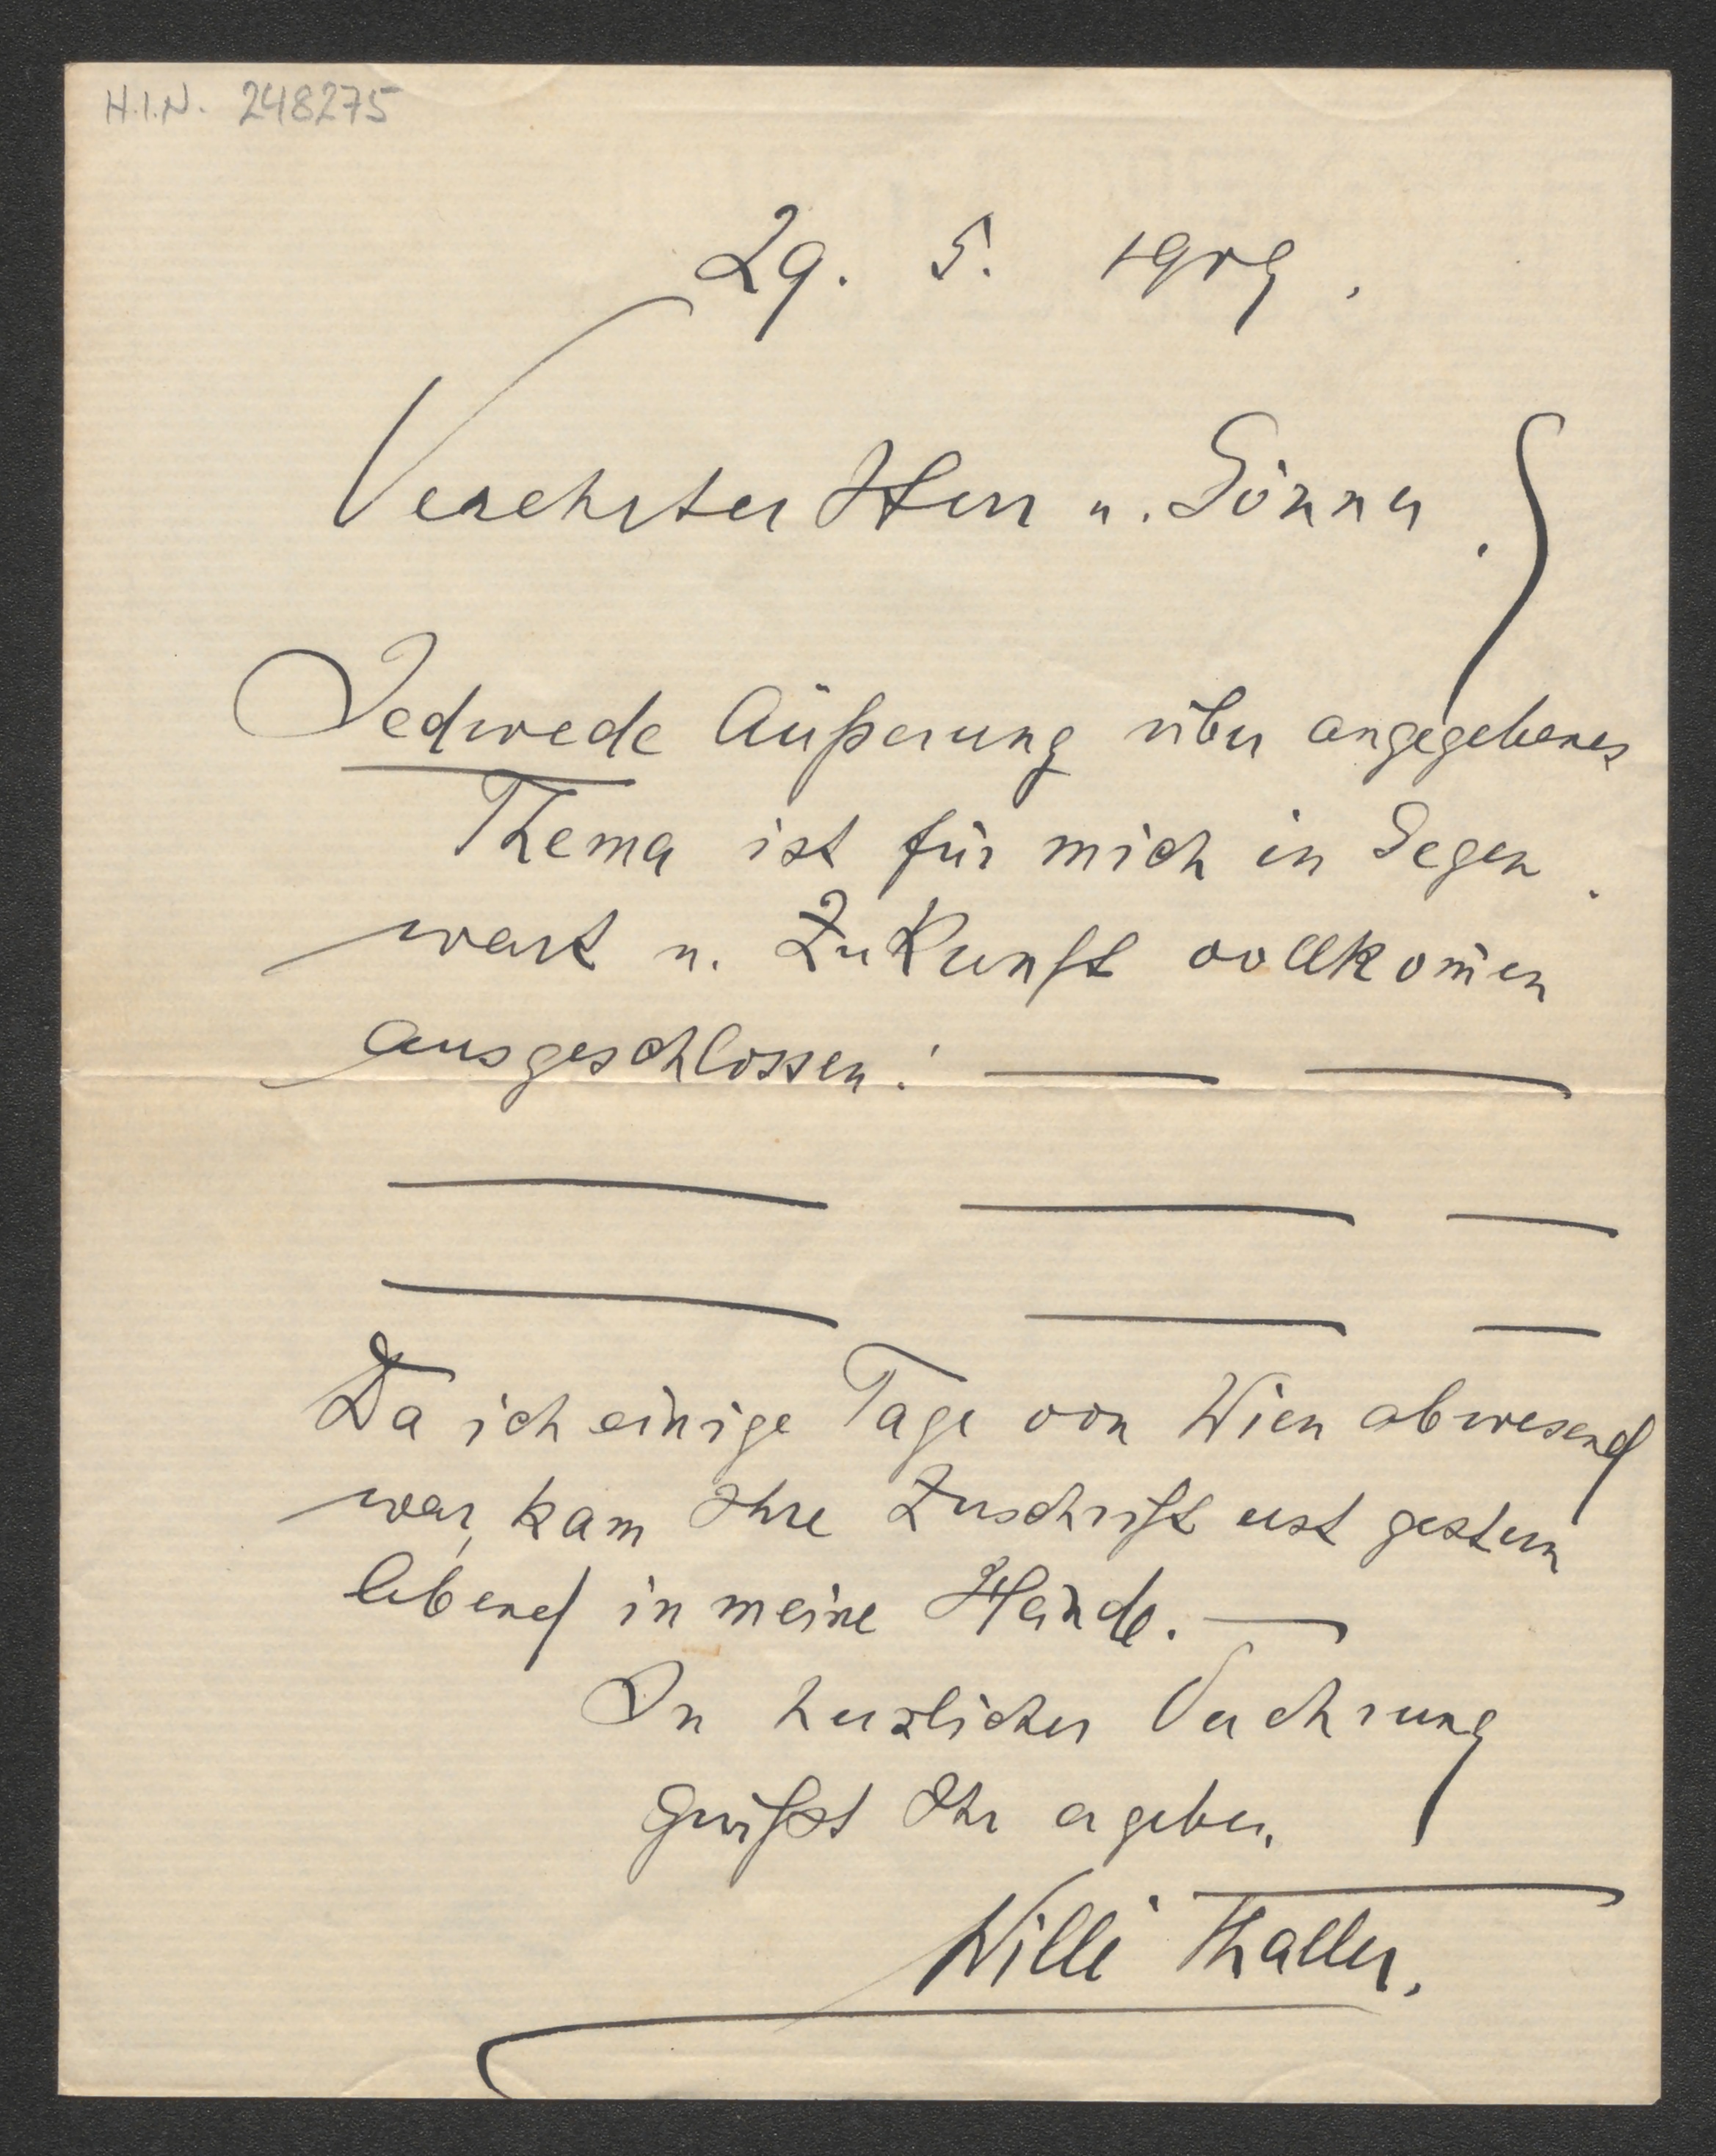 H.I.N. 248275
29. 5. 1909.
Verehrter Herr u. Gönner.
Jedwede Äußerung über angegebenes
Thema ist für mich in Gegen
wart u. Zukunft vollkom̄en
ausgeschlossen! — —
— — —
— — —
Da ich einige Tage von Wien abwesend
war, kam Ihre Zuschrift erst gestern
Abend in meine Hände. —
In herzlicher Verehrung
Grüßt Ihr ergeben.
Willi Thaller.